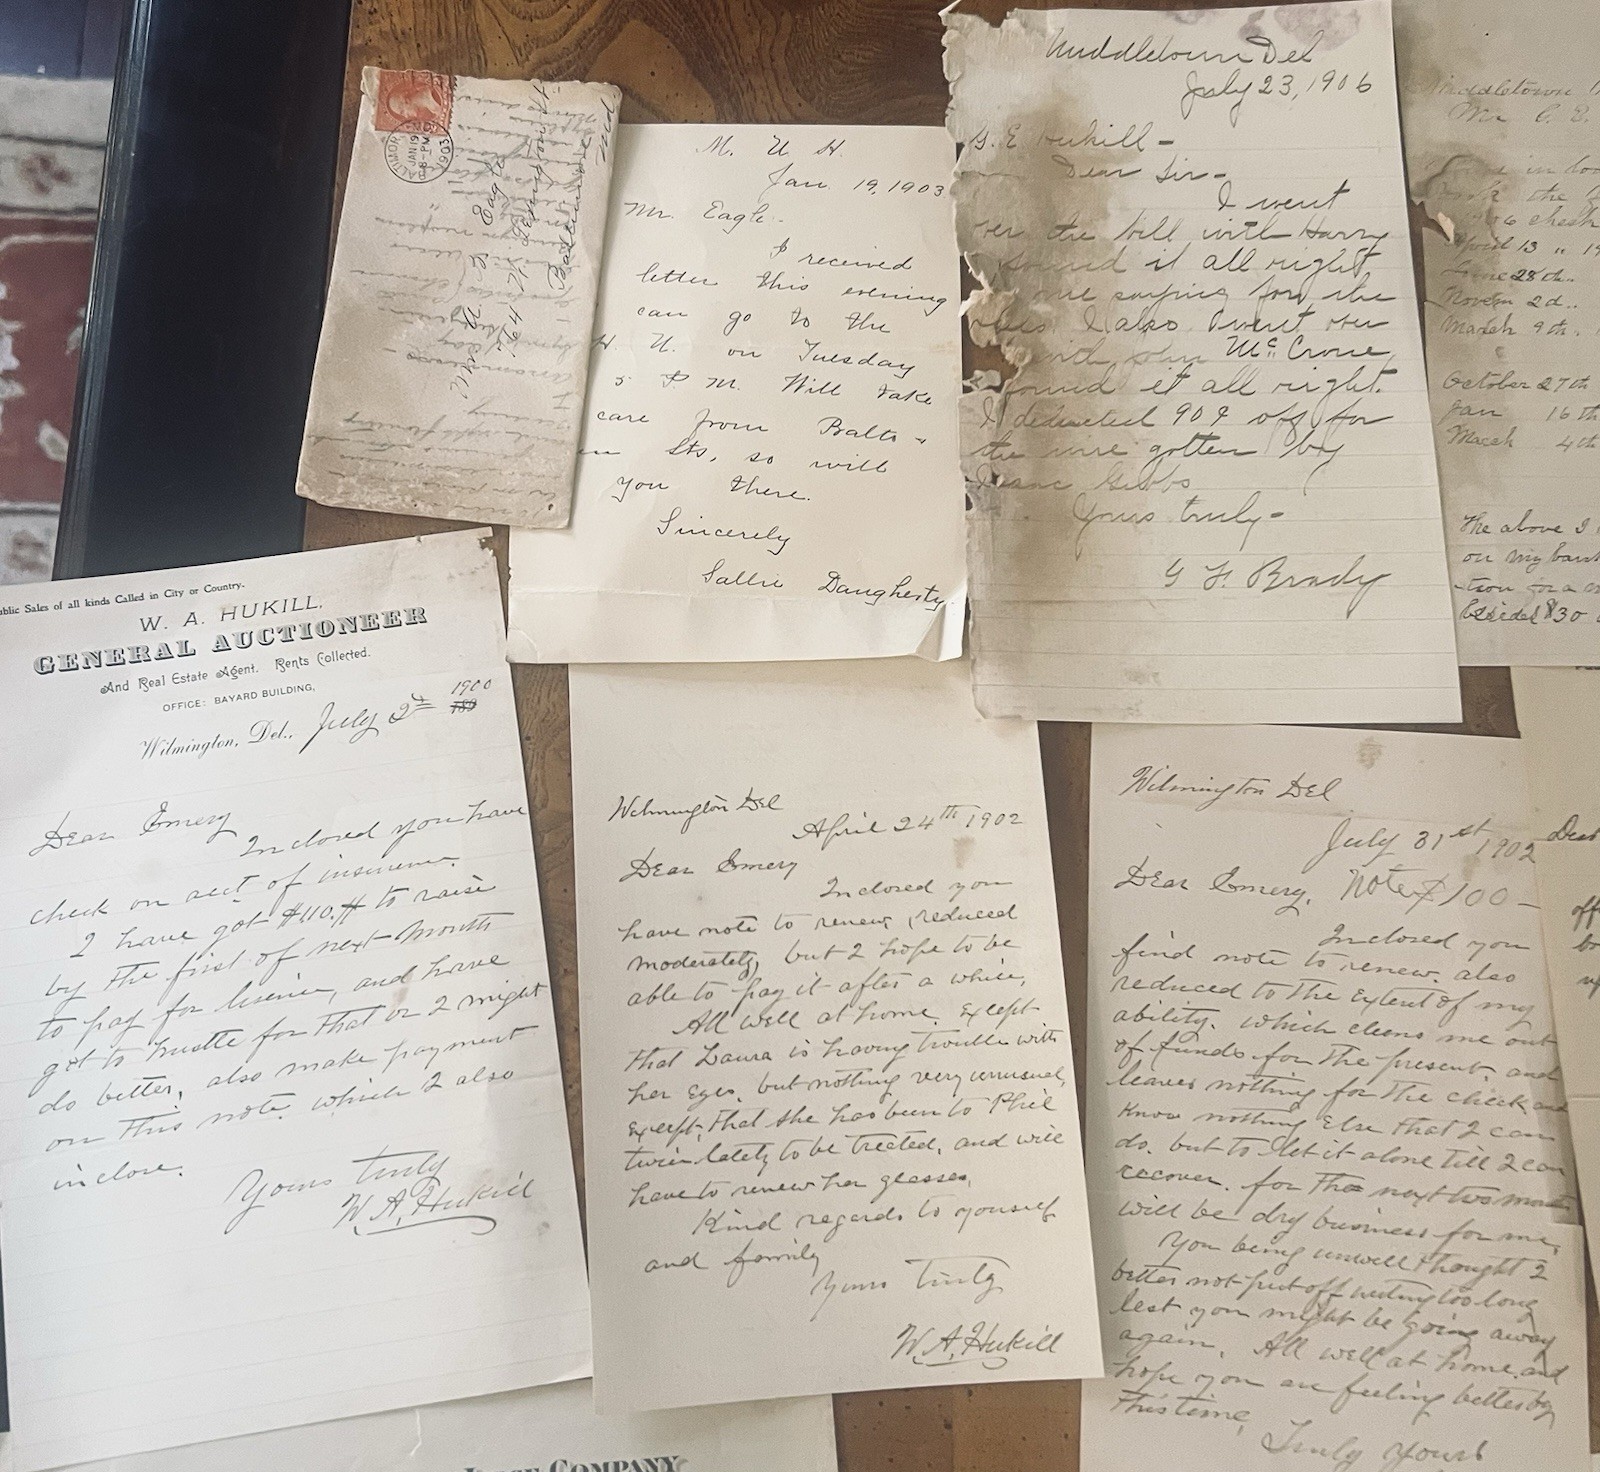 BALTIMORE
JAN 19
8-PM
1903
Eagle
Baltimore
Md
M. U. H.
Jan. 19, 1903
Mr. Eagle.
I received
letter this evening
can go to the
H. U. on Tuesday
5 P. M. Will take
care from Balto
Sts, so will
you there.
Sincerely
Sallie Daugherty.
Middletown Del
July 23, 1906
G. E Hukill -
Dear Sir -
I went
over the bill with Harry
found it all right
one paying for the
I also went over
with John McCrone,
found it all right.
I deducted 90¢ off for
the wire gotten by
Isaac Gibbs
Yours truly -
G F. Brady
Middletown
Mr
in
the
1906 check
April 13 " 19
June 28th
Novem 2d
March 9th
October 27th
Jan 16th
March 4th
The above I
on my bank
besides $30
Public Sales of all kinds Called in City or Country.
W. A. HUKILL,
GENERAL AUCTIONEER
And Real Estate Agent. Rents Collected.
OFFICE: BAYARD BUILDING,
1900
Wilmington, Del., July 2d 189
Dear Emery
Inclosed you have
check on acct. of insurance.
I have got $110. to raise
by the first of next month
to pay for lisence, and have
got to hustle for that or I might
do better, also make payment
on this note. which I also
inclose.
Yours truly
W. A. Hukill
Wilmington Del
April 24th 1902
Dear Emery
Inclosed you
have note to renew, reduced
moderately, but I hope to be
able to pay it after a while,
All well at home. Except
that Laura is having trouble with
her Eyes. but nothing very unusual,
Except, that she has been to Phil
twice lately to be treated, and will
have to renew her glasses,
Kind regards to yourself
and family
Yours Truly
W. A. Hukill
Wilmington Del
July 31st 1902
Dear Emery. Note $100-
Inclosed you
find note to renew. also
reduced to the Extent of my
ability. which cleans me out
of funds for the present, and
leaves nothing for the check, and
know nothing Else that I can
do. but to let it alone till I can
recover. for the next two months
will be dry business for me,
You being unwell thought I
better not put off writing too long
lest you might be going away
again. All well at home. and
hope you are feeling better by
this time,
Truly Yours
Dear
off
COMPANY